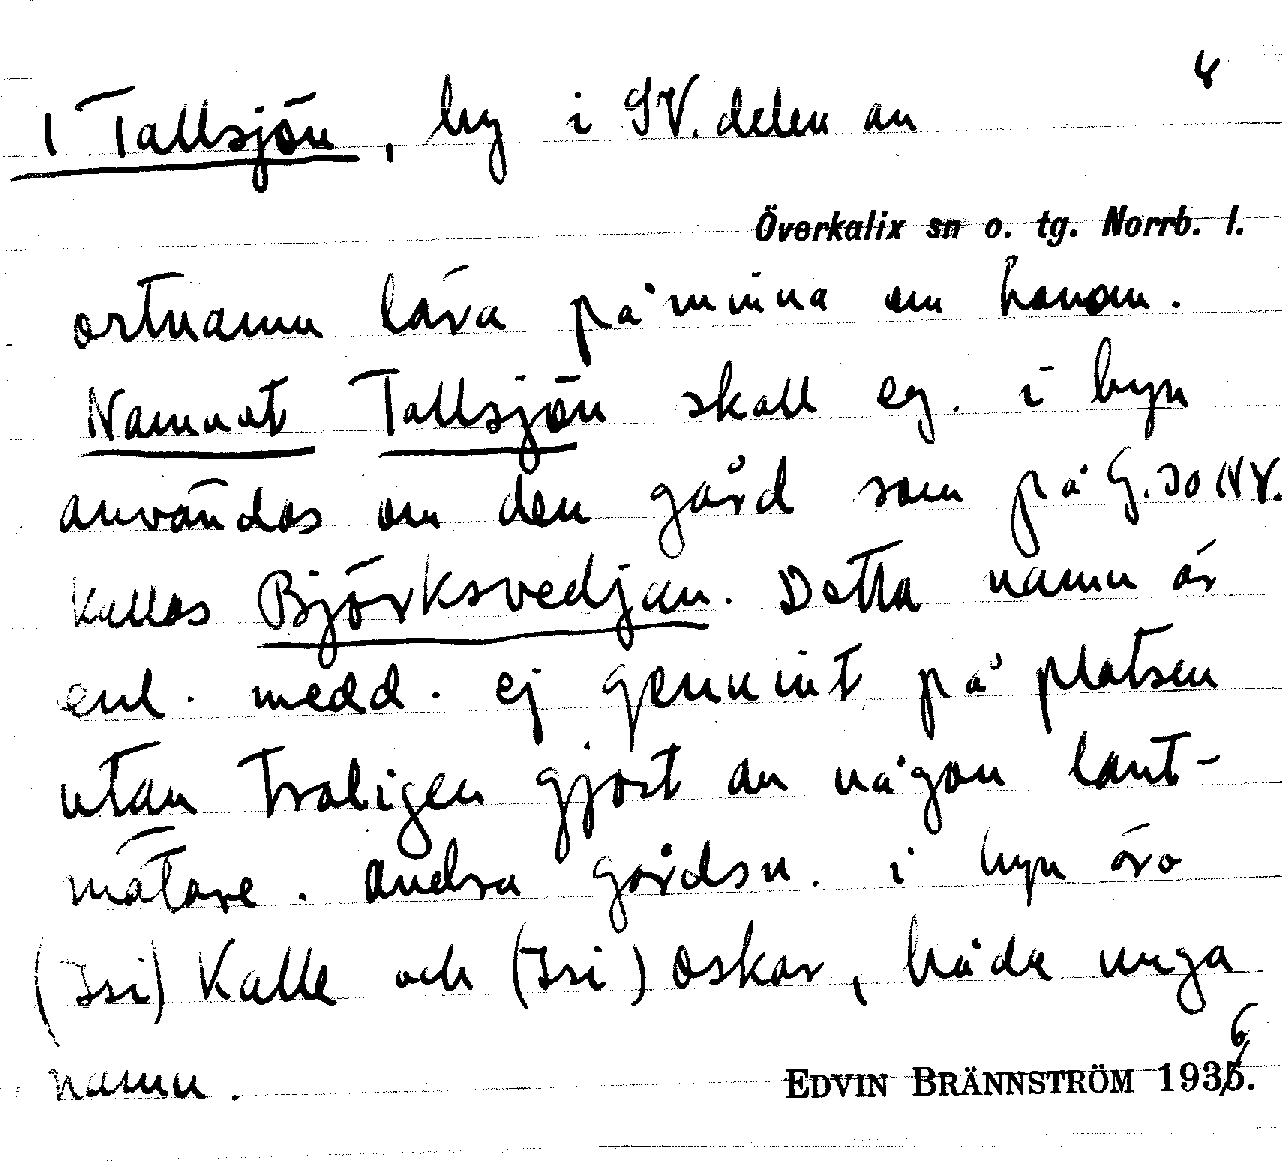 8
1 Tallsjön, by i SV. delen av
Överkalix sn o. tg. Norrb. l.
ortnamn lära påminna om honom.
Namnet Tallsjön skall eg. i byn
användas om den gård som på G. 30 NV.
kallas Björksvedjan. Detta namn är
enl. medd. ej genuint på platsen
utan troligen gjort av någon lant-
mätare. Andra gårdsn. i byn äro
(Isi) Kalle och (Isi) Oskar, båda unga
namn.
EDVIN BRÄNNSTRÖM 1936.